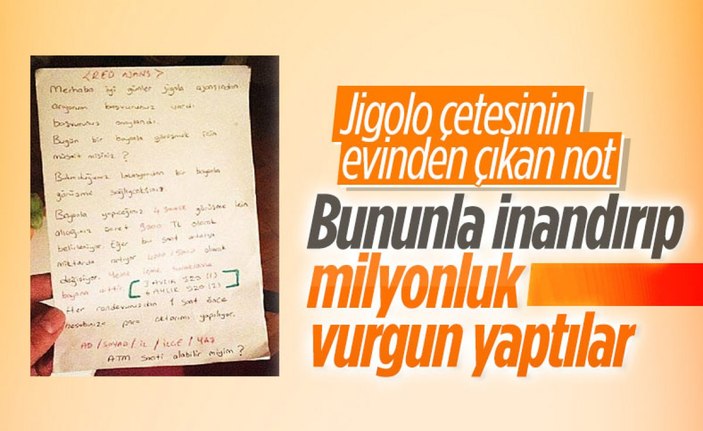 <RED AJANS>
Merhaba iyi günler jigolo ajansından
arıyorum başvurunuz vardı
başvurunuz onaylandı.
Bugün bir bayanla görüşmek için
müsait misiniz ?
Bulunduğunuz lokasyondan bir bayanla
görüşme sağlayacaksınız.
Bayanla yapacağınız 4 saatlik görüşme için
alacağınız ücret TL olarak
belirleniyor. Eğer bir saat artarsa
miktarda artıyor olarak
değişiyor. Yeme içme konaklama
bayana aittir. [ 3 AYLIK 320 (1)
6 AYLIK 520 (2) ]
randevunuzdan 1 saat önce
hesabınıza para aktarımı yapılıyor.
AD / SOYAD / İL / İLÇE / YAŞ
ATM saati alabilir miyim ?
Jigolo çetesinin
evinden çıkan not
Bununla inandırıp
milyonluk
vurgun yaptılar